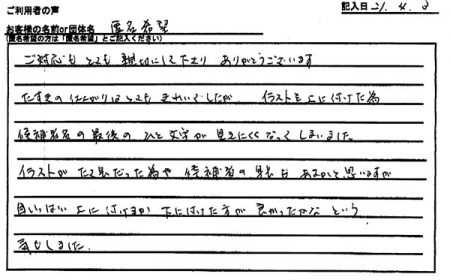 ご利用者の声
記入日 21. 4. 3
お客様の名前or団体名 匿名希望
(匿名希望の方は「匿名希望」とご記入ください)
ご対応も とても 親切にして下さり ありがとうございます
たすきの仕上がりはとても きれいでしたが イラストを上に付けた為
候補者名の最後の ひと文字が 見えにくくなってしまいました。
イラストが たて長だった為や 候補者の 身長も あるかと思いますが
目いっぱい 上に 付けるか 下に付けた方が 良かったかな という
気もしました。